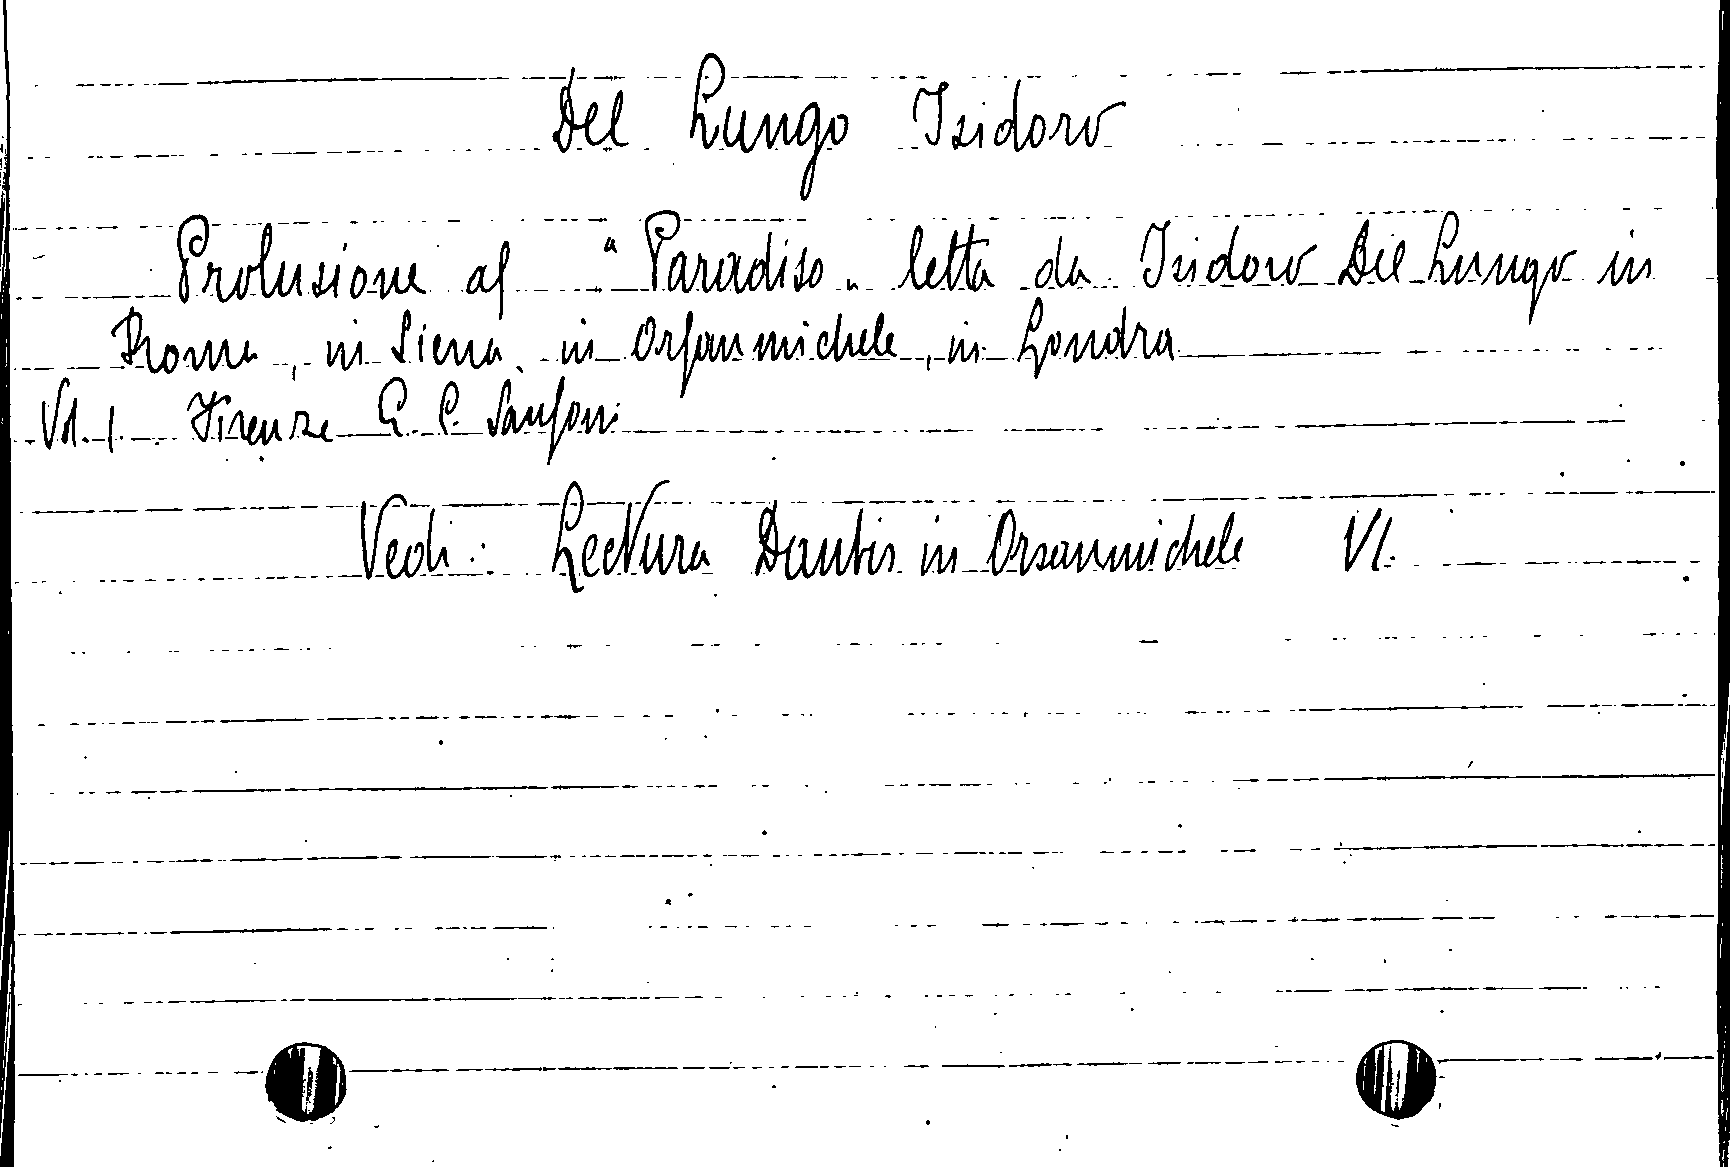 Del Lungo Isidoro
Prolusione al "Paradiso" letta da Isidoro Del Lungo in
Roma, in Siena, in Orsanmichele, in Londra
Vol. 1. Firenze G. C. Sansoni
Vedi: Lectura Dantis in Orsanmichele VI.